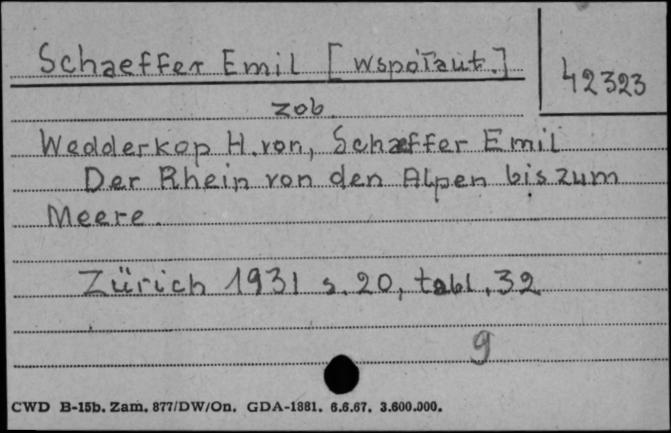 Schaeffer Emil [współaut.]
42323
zob.
Wedderkop H. von, Schaeffer Emil
Der Rhein von den Alpen bis zum
Meere.
Zürich 1931 s. 20, tabl. 32
9
CWD B-15b. Zam. 877/DW/On. GDA-1881. 6.6.67. 3.600.000.